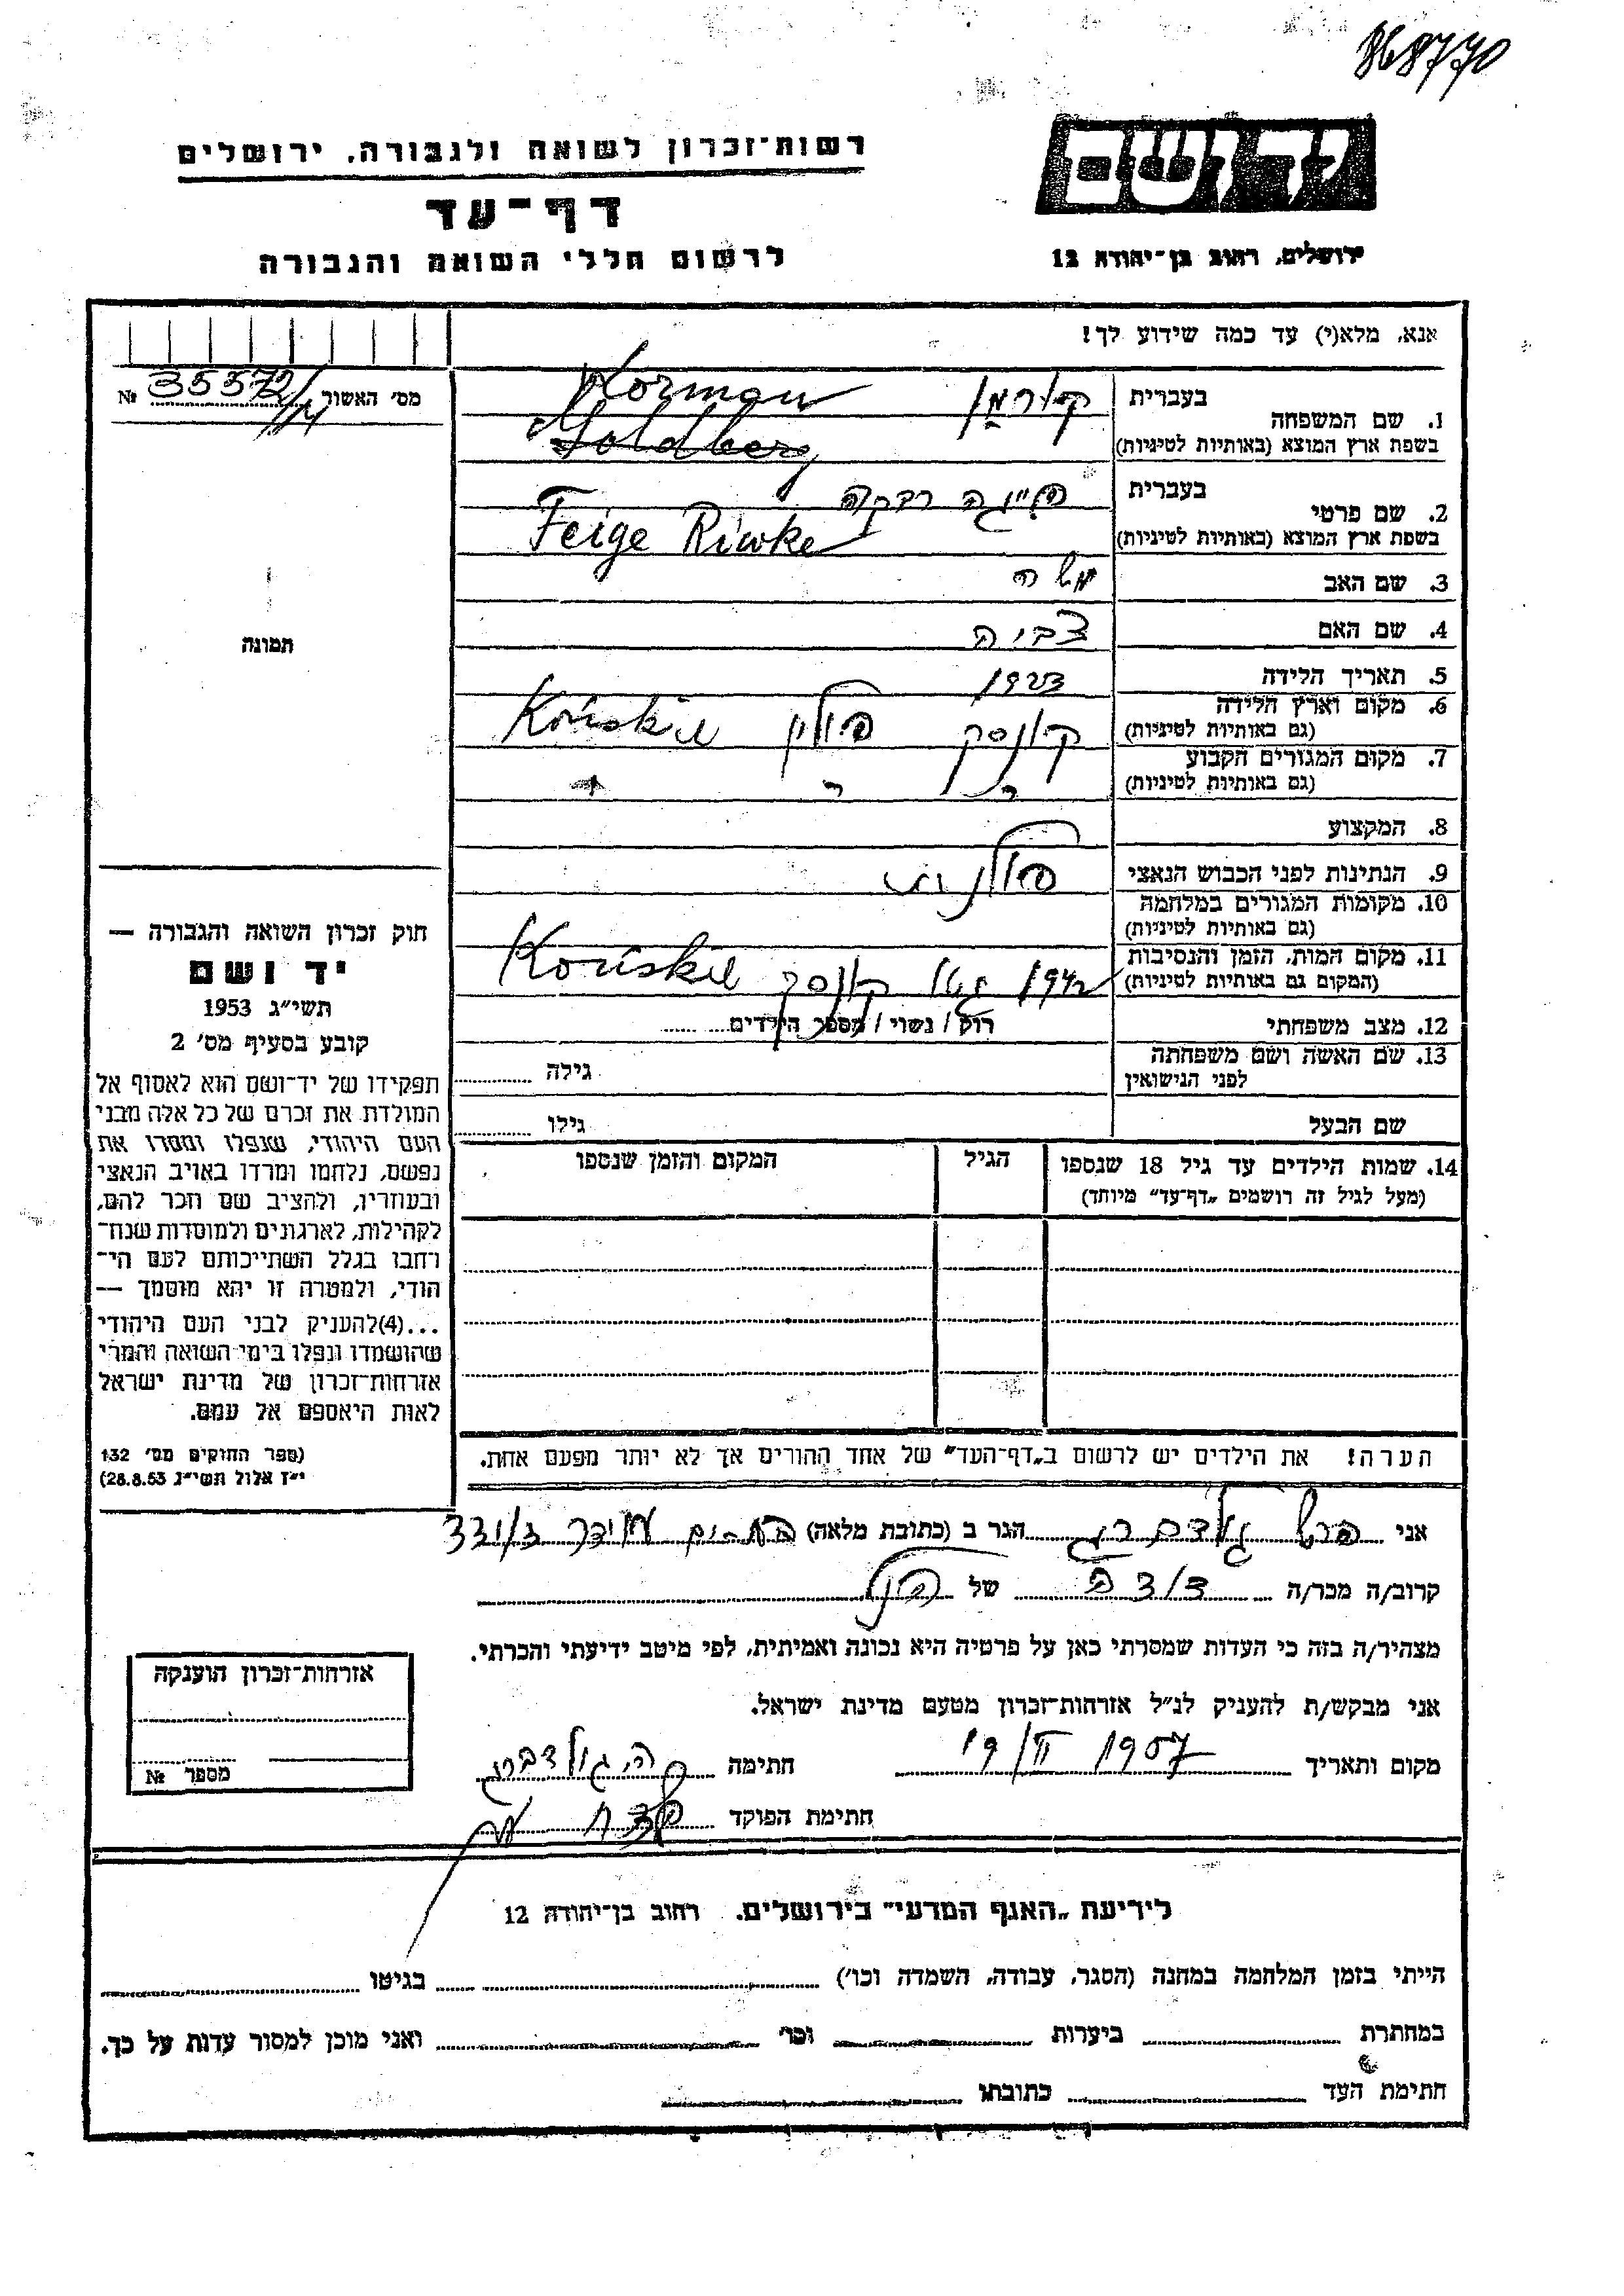 868770
יד ושם
רשות־זכרון לשואה ולגבורה, ירושלים
דף־עד
לרשום חללי השואה והגבורה
ירושלים, רחוב בן־יהודה 12
אנא, מלא(י) עד כמה שידוע לך!
מס׳ האשור 35572 №
1. שם המשפחה
בעברית קורמן Korman
בשפת ארץ המוצא (באותיות לטיניות) Goldberg
2. שם פרטי
בעברית פייגה רבקה
בשפת ארץ המוצא (באותיות לטיניות) Feige Riwke
3. שם האב משה
4. שם האם צביה
5. תאריך הלידה 1923
6. מקום וארץ הלידה
(גם באותיות לטיניות) קונסק פולין Końskie
7. מקום המגורים הקבוע
(גם באותיות לטיניות)
8. המקצוע
9. הנתינות לפני הכבוש הנאצי פולנית
10. מקומות המגורים במלחמה
(גם באותיות לטיניות)
11. מקום המות, הזמן והנסיבות
(המקום גם באותיות לטיניות) 1942 גטו קונסק Końskie
12. מצב משפחתי רוק / נשוי / מספר הילדים
13. שם האשה ושם משפחתה
לפני הנישואין גילה
שם הבעל גילו
14. שמות הילדים עד גיל 18 שנספו הגיל המקום והזמן שנספו
(מעל לגיל זה רושמים „דף־עד״ מיוחד)
הערה! את הילדים יש לרשום ב„דף־העד״ של אחד ההורים אך לא יותר מפעם אחת.
תמונה
חוק זכרון השואה והגבורה —
יד ושם
תשי״ג 1953
קובע בסעיף מס׳ 2
תפקידו של יד־ושם הוא לאסוף אל
המולדת את זכרם של כל אלה מבני
העם היהודי, שנפלו ומסרו את
נפשם, נלחמו ומרדו באויב הנאצי
ובעוזריו, ולהציב שם וזכר להם,
לקהילות, לארגונים ולמוסדות שנח־
רחבו בגלל השתייכותם לעם הי־
הודי, ולמטרה זו יהא מוסמך —
...(4)להעניק לבני העם היהודי
שהושמדו ונפלו בימי השואה והמרי
אזרחות־זכרון של מדינת ישראל
לאות היאספם אל עמם.
(ספר החוקים מס׳ 132
י״ז אלול תשי״ג 28.8.53)
אני גולדברג הגר ב (כתובת מלאה) בת-ים
קרוב/ה מכר/ה דודה של הנ״ל
מצהיר/ה בזה כי העדות שמסרתי כאן על פרטיה היא נכונה ואמיתית, לפי מיטב ידיעתי והכרתי.
אני מבקש/ת להעניק לנ״ל אזרחות־זכרון מטעם מדינת ישראל.
מקום ותאריך 19/II 1957 חתימה גולדברג
חתימת הפוקד
אזרחות־זכרון הוענקה
מספר №
לידיעת „האגף המדעי״ בירושלים, רחוב בן־יהודה 12
הייתי בזמן המלחמה במחנה (הסגר, עבודה, השמדה וכו׳) בגיטו
במחתרת ביערות וכו׳ ואני מוכן למסור עדות על כך.
חתימת העד כתובתו